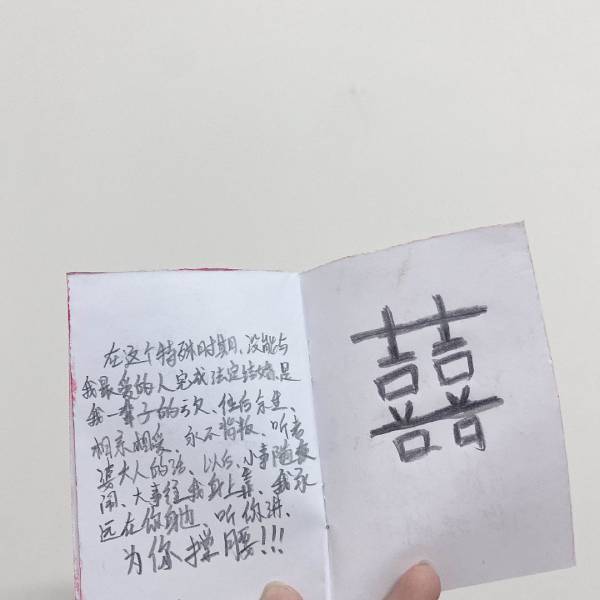 在这个特殊时期、没能与
我最爱的人完成法定结婚、是
我一辈子的亏欠、往后余生、
相亲相爱、永不背叛、听老
婆大人的话、以后、小事随表
闹、大事往我身上靠、我永
远在你身边、听你讲、
为你撑腰!!!
囍